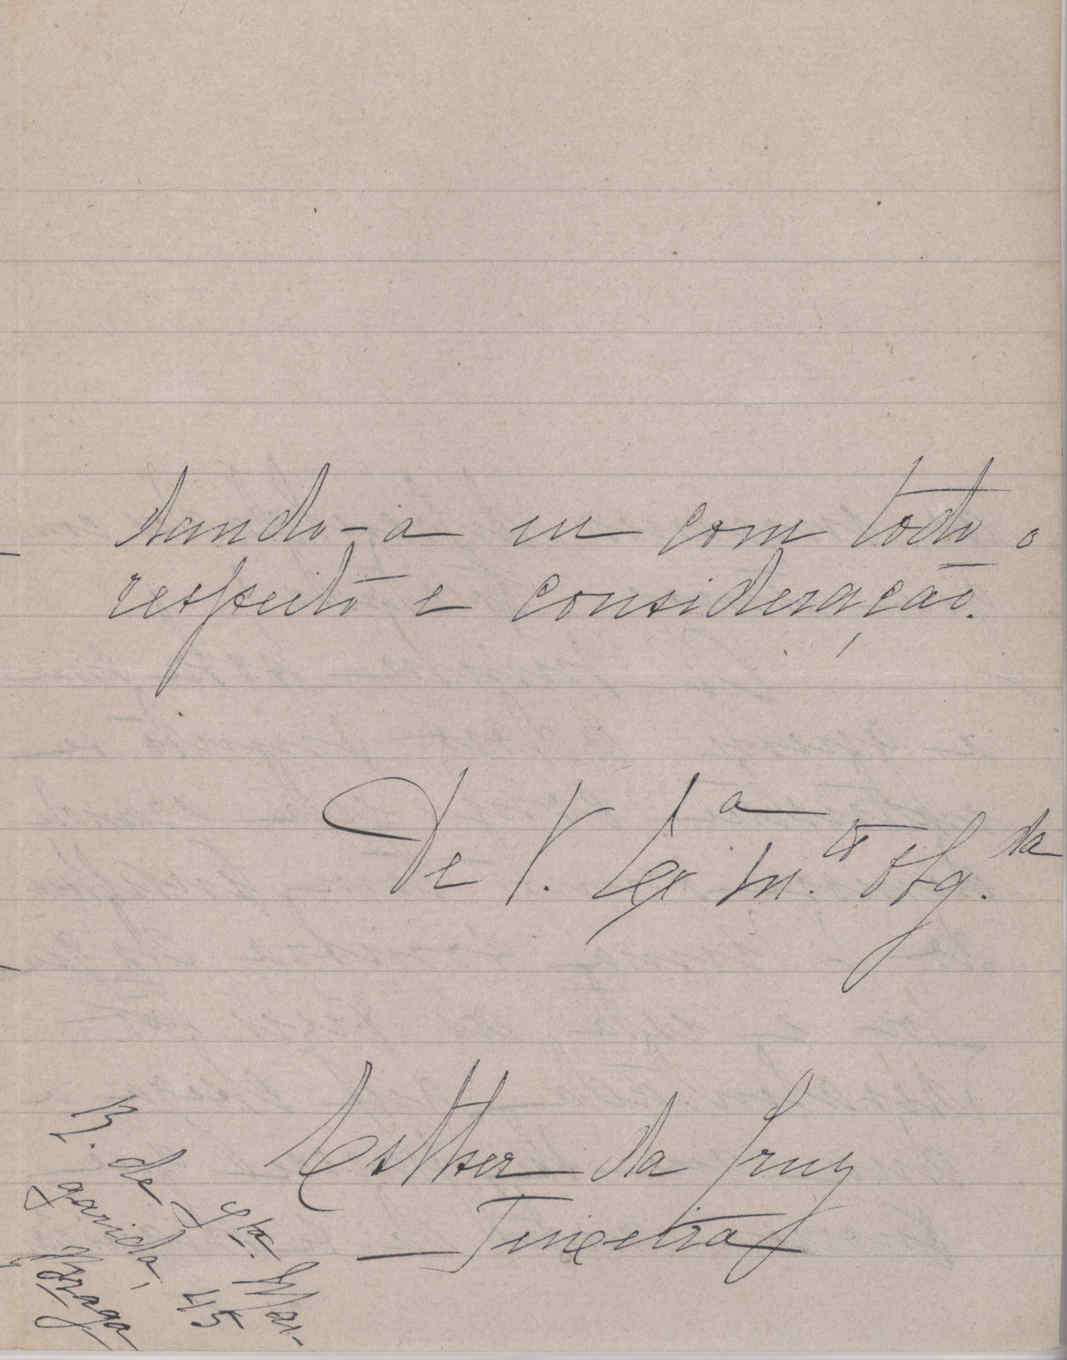 dando-a eu com todo o
respeito e consideração.
De V. Ex.ª m.to Obg.da
Esther da Cruz
Teixeira
R. de Sta. Mar-
garida, 45
Braga